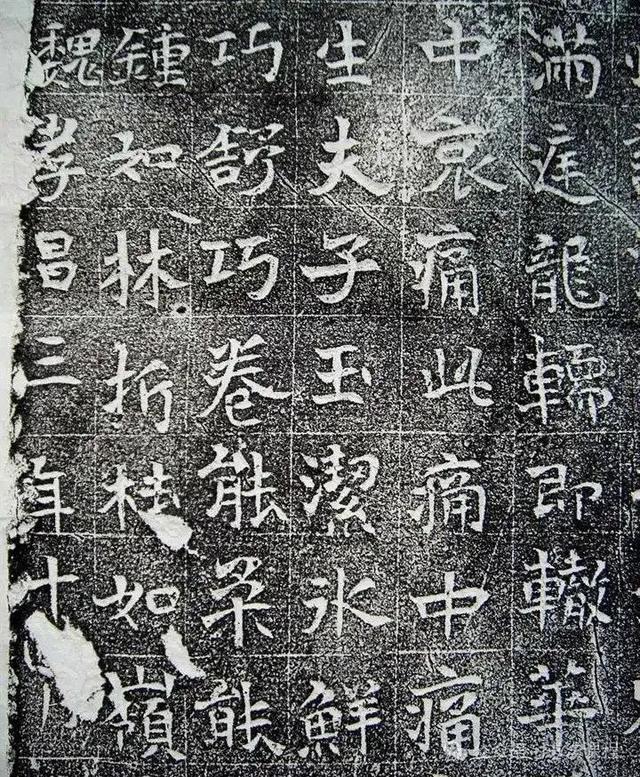 滿庭龍轜即轍華
中哀痛此痛中痛
生夫子玉潔氷鮮
巧舒巧卷能柔能
鍾如林折桂如嶺
魏孝昌三年十